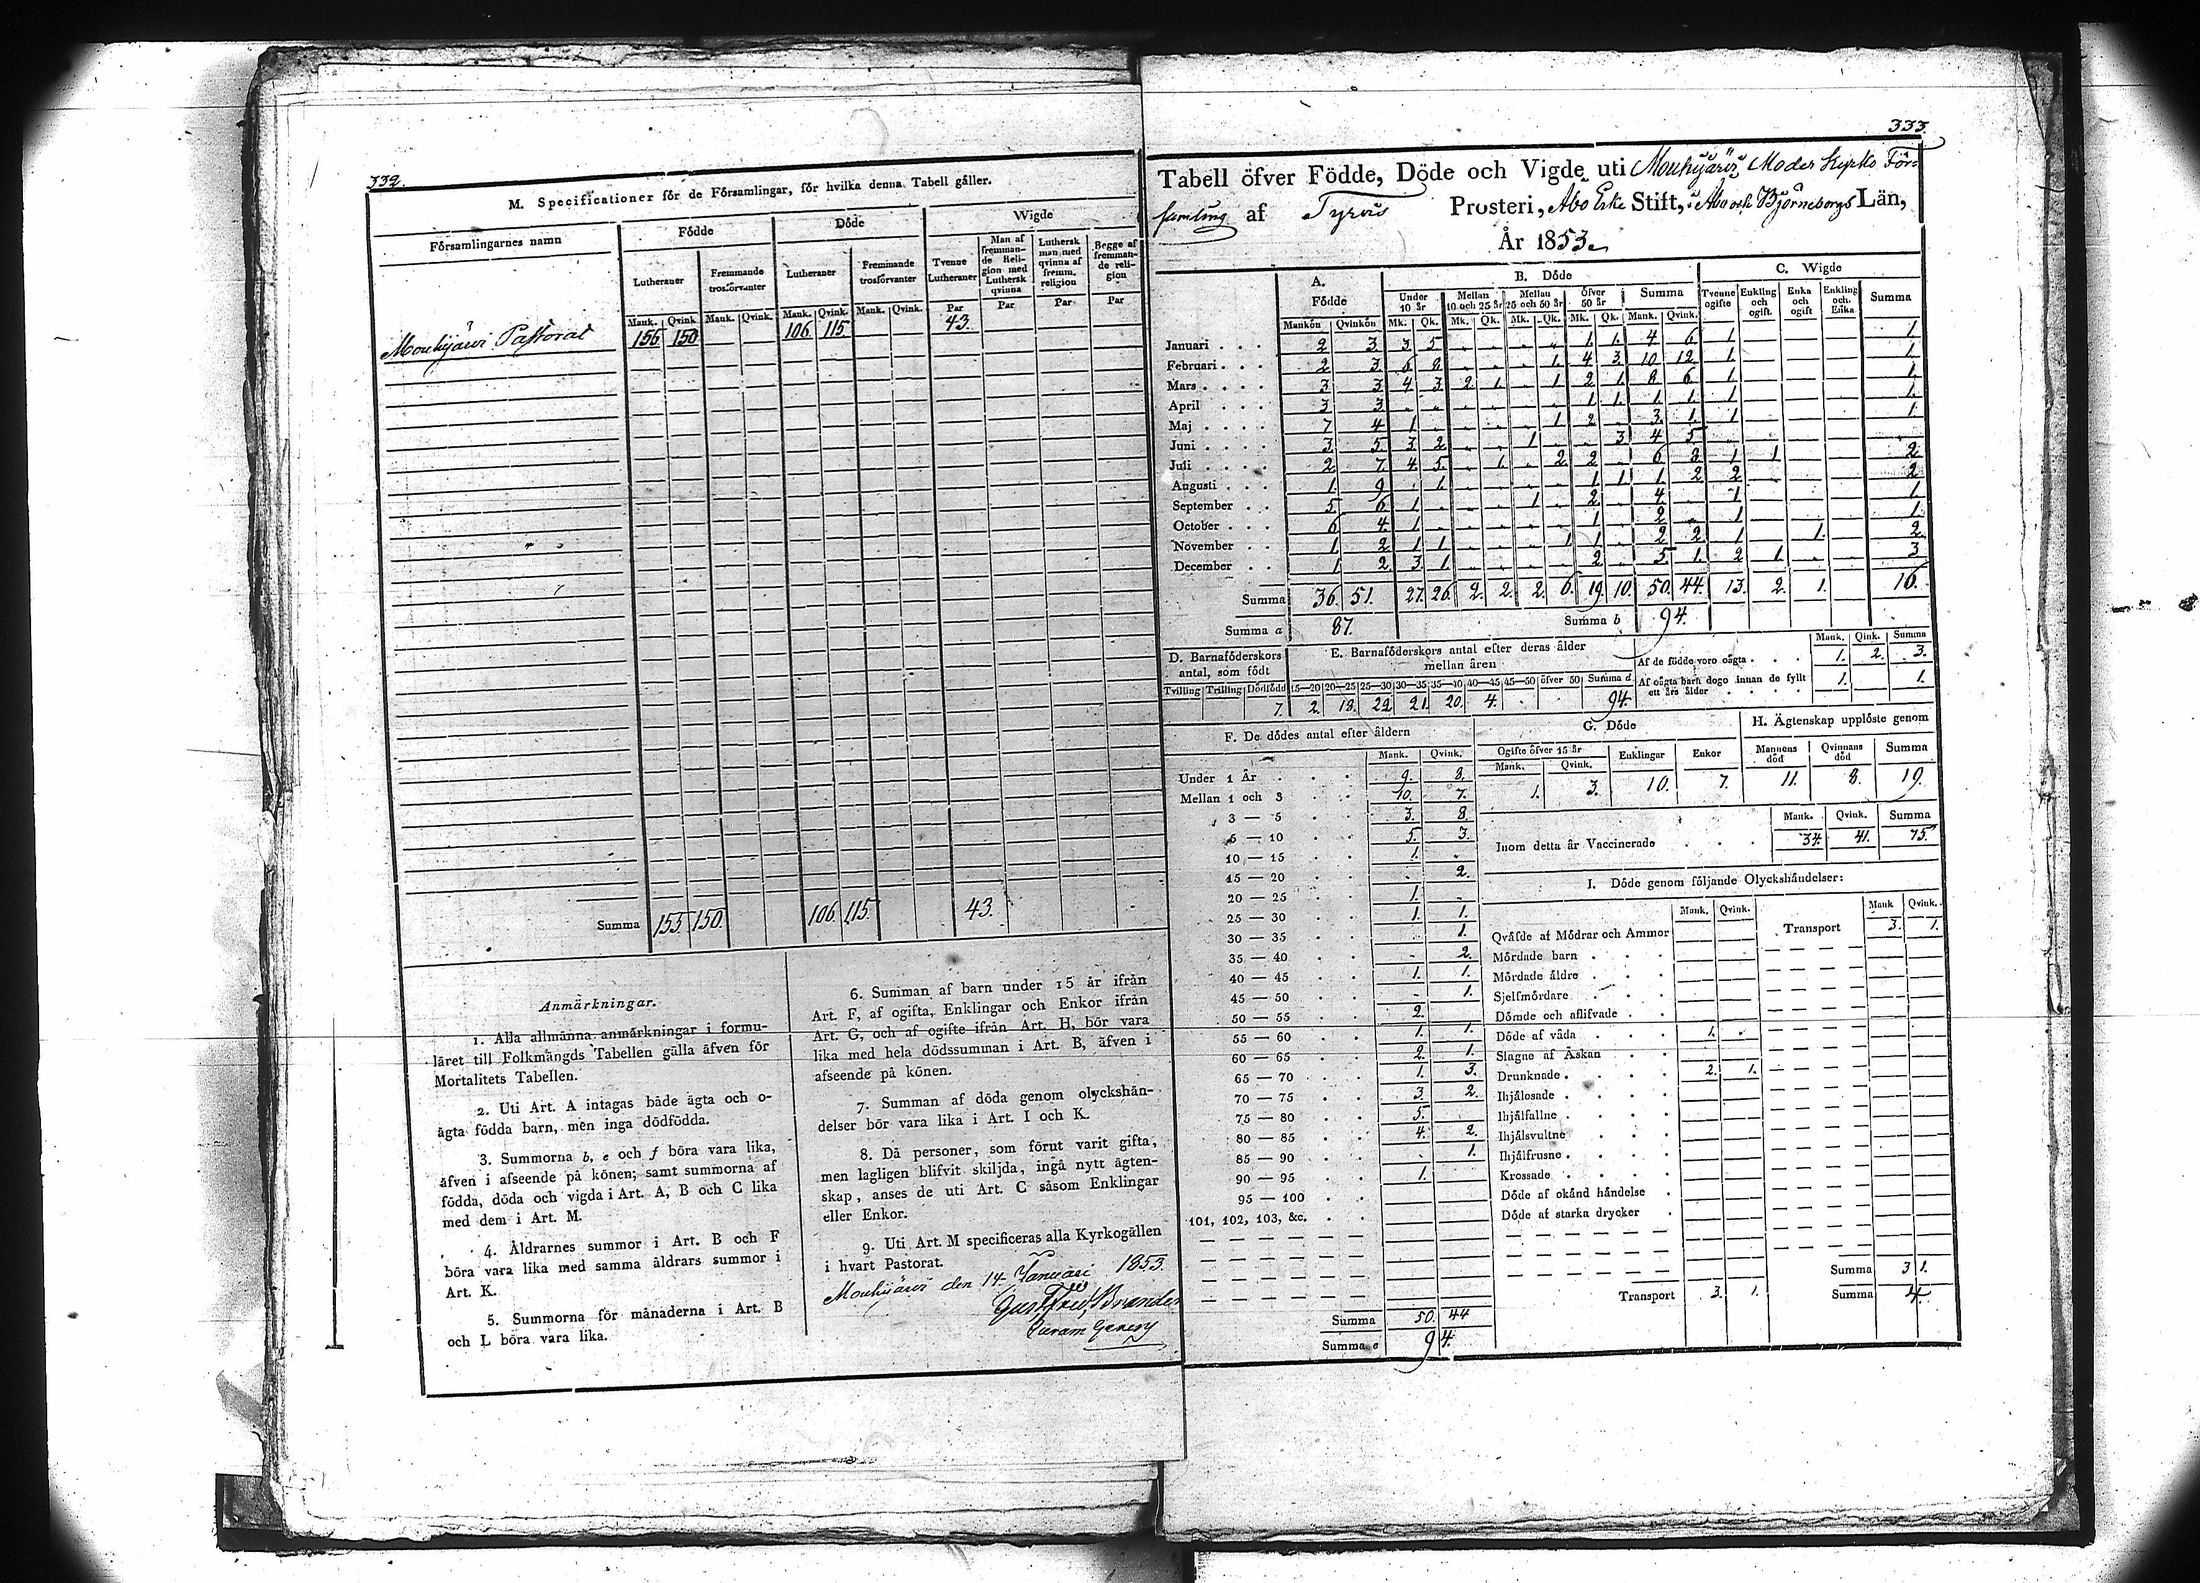 332.
M. Specificationer för de Församlingar, för hvilka denna Tabell gäller.
Församlingarnes namn
Födde
Döde
Wigde
Lutheraner
Fremmande trosförvanter
Lutheraner
Fremmande trosförvanter
Tvenne Lutheraner
Man af fremmande Religion med Luthersk qvinna
Luthersk man med qvinna af fremm. religion
Begge af fremmande religion
Mank. Qvink. Mank. Qvink. Mank. Qvink. Mank. Qvink. Par Par Par Par
Mouhijärvi Pastorat 156 150 106. 115 43.
Summa 155. 150. 106. 115. 43.
Anmärkningar.
1. Alla allmänna anmärkningar i formu-
läret till Folkmängds Tabellen gälla äfven för
Mortalitets Tabellen.
2. Uti Art. A intagas både ägta och o-
ägta födda barn, men inga dödfödda.
3. Summorna b, e och f böra vara lika,
äfven i afseende på könen; samt summorna af
födda, döda och vigda i Art. A, B och C lika
med dem i Art. M.
4. Åldrarnes summor i Art. B och F
böra vara lika med samma åldrars summor i
Art. K.
5. Summorna för månaderna i Art. B
och L böra vara lika.
6. Summan af barn under 15 år ifrån
Art. F, af ogifta, Enklingar och Enkor ifrån
Art. G, och af ogifte ifrån Art. H, bör vara
lika med hela dödssumman i Art. B, äfven i
afseende på könen.
7. Summan af döda genom olyckshän-
delser bör vara lika i Art. I och K.
8. Då personer, som förut varit gifta,
men lagligen blifvit skiljda, ingå nytt ägten-
skap, anses de uti Art. C såsom Enklingar
eller Enkor.
9. Uti Art. M specificeras alla Kyrkogällen
i hvart Pastorat.
Mouhijärvi den 14 Januari 1853.
Gust. Fred. Brander
333.
Tabell öfver Födde, Döde och Vigde uti Mouhijärvi Moder Kyrko För-
samling af Tyrvis Prosteri, Åbo Erke Stift, i Åbo och Björneborgs Län,
År 1853.
A. Födde
B. Döde
C. Wigde
Under 10 år
Mellan 10 och 25 år
Mellan 25 och 50 år
öfver 50 år
Summa
Tvenne ogifte
Enkling och ogift.
Enka och ogift
Enkling och Enka
Summa
Mankön Qvinkön Mk. Qk. Mk. Qk. Mk. Qk. Mk. Qk. Mank. Qvink.
Januari 2 3 3 5 1 1. 4 6 1 1.
Februari 2 3. 6 8 1. 4 3. 10 12. 1. 1.
Mars 3 3 4 3. 2 1. 1. 2 1. 8 6. 1. 1.
April 3 3 1 1. 1 1. 1 1.
Maj 7 4 1 1 2 3. 1. 1 1.
Juni 3 5. 3 2 1 3. 4 5
Juli 2 7. 4 5. 1. 2. 2. 6 8. 1 1 2
Augusti 1. 9 1. 1 1 1 2 2 2
September 5 6 1 1 2 4 1 1
October 6 4 1 1 2 1 1.
November 1. 2 1 1 1 1 2 2 1 1. 2
December 1 2. 3 1. 2 5. 1. 2 1. 3
Summa 36. 51. 27. 26. 2. 2. 2. 6. 19 10. 50. 44. 13. 2. 1. 16.
Summa a 87. Summa b 94.
D. Barnaföderskors antal, som födt
E. Barnaföderskors antal efter deras ålder mellan åren
Tvilling Trilling Dödfödd 15—20 20—25 25—30 30—35 35—40 40—45 45—50 öfver 50 Summa d
7. 2. 18. 22. 21. 20. 4. 94.
Mank. Qink. Summa
Af de födde voro oägta 1. 2. 3.
Af oägta barn dogo innan de fyllt ett års ålder 1. 1.
F. De dödes antal efter åldern
Mank. Qvink.
Under 1 År 9. 8.
Mellan 1 och 3 10. 7.
3 — 5 3. 8.
5 — 10 5. 3.
10 — 15 1.
15 — 20 2.
20 — 25 1.
25 — 30 1. 1.
30 — 35 1.
35 — 40 2.
40 — 45 1. 1.
45 — 50 1.
50 — 55 2.
55 — 60 1. 1.
60 — 65 2. 1.
65 — 70 1. 3.
70 — 75 3. 2.
75 — 80 5.
80 — 85 4. 2.
85 — 90 1.
90 — 95 1.
95 — 100
101, 102, 103, &c.
Summa 50. 44
Summa e 94.
G. Döde
Ogifte öfver 15 år
Enklingar
Enkor
Mank. Qvink.
1. 3. 10. 7.
H. Ägtenskap upplöste genom
Mannens död
Qvinnans död
Summa
11. 8. 19.
Mank. Qvink. Summa
Inom detta år Vaccinerade 34. 41. 75.
I. Döde genom följande Olyckshändelser:
Mank. Qvink. Mank Qvink.
Qväfde af Mödrar och Ammor
Transport 3. 1.
Mördade barn
Mördade äldre
Sjelfmördare
Dömde och aflifvade
Döde af våda 1.
Slagne af Åskan
Drunknade 2. 1.
Ihjälosade
Ihjälfallne
Ihjälsvultne
Ihjälfrusne
Krossade
Döde af okänd händelse
Döde af starka drycker
Summa 3 1.
Transport 3. 1. Summa 4.